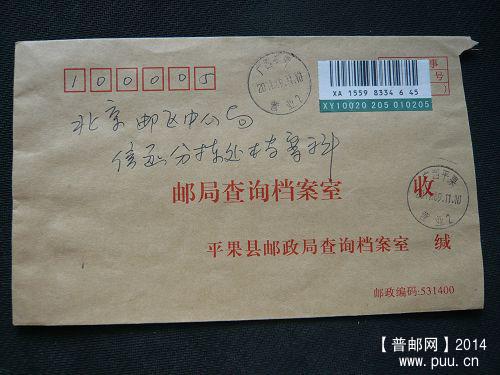 100005
XA 1559 8334 6 45
XY10020 205 010205
北京邮区中心局
信函分拣处档案科
邮局查询档案室 收
平果县邮政局查询档案室 缄
邮政编码:531400
广西平果
营业2
广西平果
营业2
【普邮网】2014
www.puu.cn